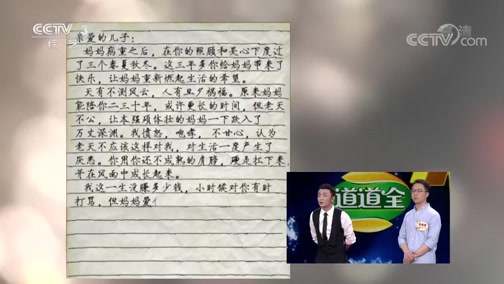 CCTV 3
综
CCTV.com
亲爱的儿子：
妈妈病重之后，在你的照顾和关心下度过
了三个春夏秋冬。这三年多你给妈妈带来了
快乐，让妈妈重新燃起生活的希望。
天有不测风云，人有旦夕祸福。原来妈妈
能陪你二三十年，或许更长的时间，但老天
不公，让本强硕体壮的妈妈一下跌入了
万丈深渊。我愤怒，咆哮，不甘心，认为
老天不应该这样对我，对生活一度产生了
厌恶。你用你还不成熟的肩膀，硬是扛下来
并在风雨中成长起来。
我这一生没赚多少钱，小时候对你有时
打骂，但妈妈爱
道道全